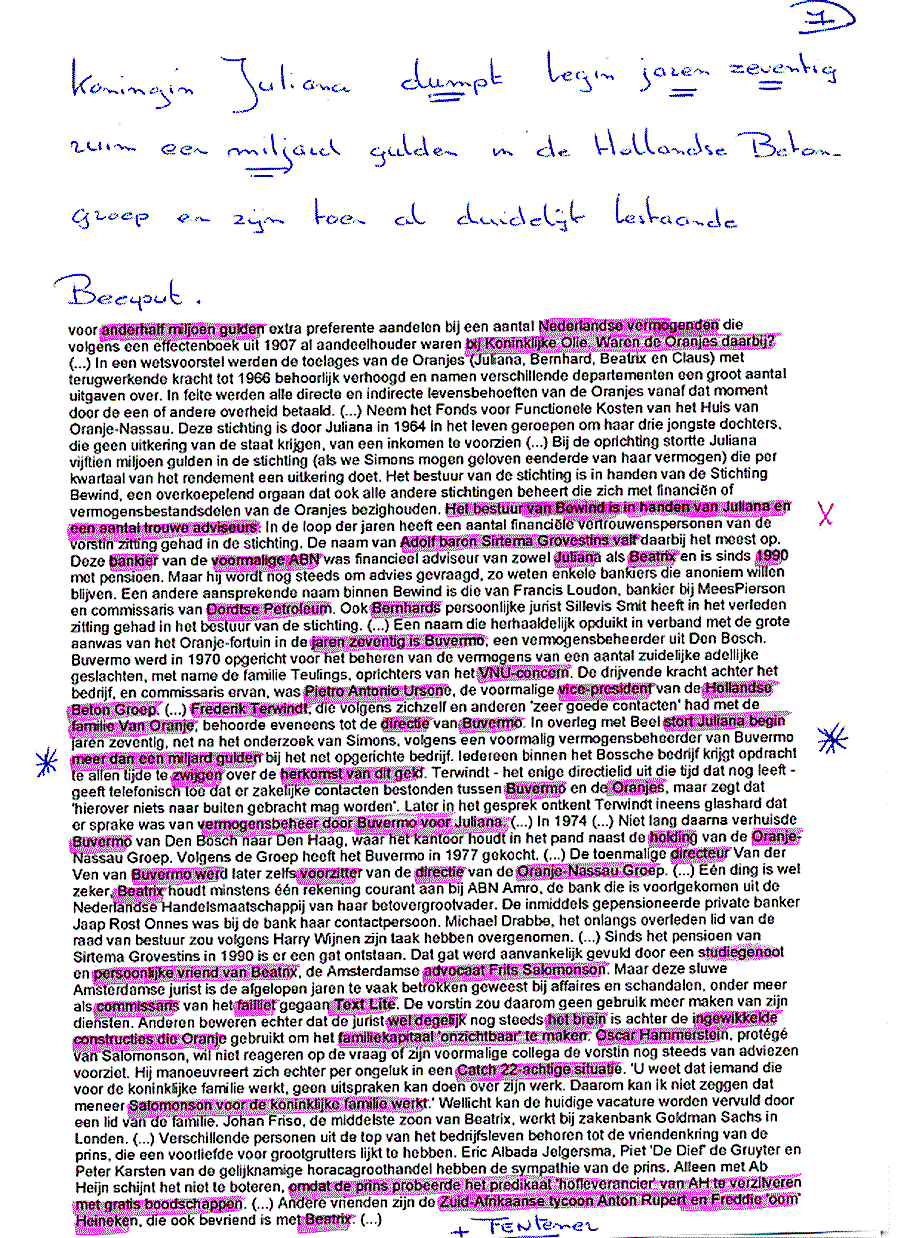 1
Koningin Juliana dumpt begin jaren zeventig
ruim een miljard gulden in de Hollandse Beton-
groep en zijn toen al duidelijk bestaande
Beerput.
voor anderhalf miljoen gulden extra preferente aandelen bij een aantal Nederlandse vermogenden die
volgens een effectenboek uit 1907 al aandeelhouder waren bij Koninklijke Olie. Waren de Oranjes daarbij?
(...) In een wetsvoorstel werden de toelages van de Oranjes (Juliana, Bernhard, Beatrix en Claus) met
terugwerkende kracht tot 1966 behoorlijk verhoogd en namen verschillende departementen een groot aantal
uitgaven over. In feite werden alle directe en indirecte levensbehoeften van de Oranjes vanaf dat moment
door de een of andere overheid betaald. (...) Neem het Fonds voor Functionele Kosten van het Huis van
Oranje-Nassau. Deze stichting is door Juliana in 1964 in het leven geroepen om haar drie jongste dochters,
die geen uitkering van de staat krijgen, van een inkomen te voorzien (...) Bij de oprichting stortte Juliana
vijftien miljoen gulden in de stichting (als we Simons mogen geloven eenderde van haar vermogen) die per
kwartaal van het rendement een uitkering doet. Het bestuur van de stichting is in handen van de Stichting
Bewind, een overkoepelend orgaan dat ook alle andere stichtingen beheert die zich met financiën of
vermogensbestandsdelen van de Oranjes bezighouden. Het bestuur van Bewind is in handen van Juliana en
een aantal trouwe adviseurs. In de loop der jaren heeft een aantal financiële vertrouwenspersonen van de
vorstin zitting gehad in de stichting. De naam van Adolf baron Sirtema Grovestins valt daarbij het meest op.
Deze bankier van de voormalige ABN was financieel adviseur van zowel Juliana als Beatrix en is sinds 1990
met pensioen. Maar hij wordt nog steeds om advies gevraagd, zo weten enkele bankiers die anoniem willen
blijven. Een andere aansprekende naam binnen Bewind is die van Francis Loudon, bankier bij MeesPierson
en commissaris van Dordtse Petroleum. Ook Bernhards persoonlijke jurist Sillevis Smit heeft in het verleden
zitting gehad in het bestuur van de stichting. (...) Een naam die herhaaldelijk opduikt in verband met de grote
aanwas van het Oranje-fortuin in de jaren zeventig is Buvermo, een vermogensbeheerder uit Den Bosch.
Buvermo werd in 1970 opgericht voor het beheren van de vermogens van een aantal zuidelijke adellijke
geslachten, met name de familie Teulings, oprichters van het VNU-concern. De drijvende kracht achter het
bedrijf, en commissaris ervan, was Pietro Antonio Ursone, de voormalige vice-president van de Hollandse
Beton Groep. (...) Frederik Terwindt, die volgens zichzelf en anderen 'zeer goede contacten' had met de
familie Van Oranje, behoorde eveneens tot de directie van Buvermo. In overleg met Beel stort Juliana begin
jaren zeventig, net na het onderzoek van Simons, volgens een voormalig vermogensbeheerder van Buvermo
meer dan een miljard gulden bij het net opgerichte bedrijf. Iedereen binnen het Bossche bedrijf krijgt opdracht
te allen tijde te zwijgen over de herkomst van dit geld. Terwindt - het enige directielid uit die tijd dat nog leeft -
geeft telefonisch toe dat er zakelijke contacten bestonden tussen Buvermo en de Oranjes, maar zegt dat
'hierover niets naar buiten gebracht mag worden'. Later in het gesprek ontkent Terwindt ineens glashard dat
er sprake was van vermogensbeheer door Buvermo voor Juliana. (...) In 1974 (...) Niet lang daarna verhuisde
Buvermo van Den Bosch naar Den Haag, waar het kantoor houdt in het pand naast de holding van de Oranje-
Nassau Groep. Volgens de Groep heeft het Buvermo in 1977 gekocht. (...) De toenmalige directeur Van der
Ven van Buvermo werd later zelfs voorzitter van de directie van de Oranje-Nassau Groep. (...) Eén ding is wel
zeker, Beatrix houdt minstens één rekening courant aan bij ABN Amro, de bank die is voortgekomen uit de
Nederlandse Handelsmaatschappij van haar betovergrootvader. De inmiddels gepensioneerde private banker
Jaap Rost Onnes was bij de bank haar contactpersoon. Michael Drabbe, het onlangs overleden lid van de
raad van bestuur zou volgens Harry Wijnen zijn taak hebben overgenomen. (...) Sinds het pensioen van
Sirtema Grovestins in 1990 is er een gat ontstaan. Dat gat werd aanvankelijk gevuld door een studiegenoot
en persoonlijke vriend van Beatrix, de Amsterdamse advocaat Frits Salomonson. Maar deze sluwe
Amsterdamse jurist is de afgelopen jaren te vaak betrokken geweest bij affaires en schandalen, onder meer
als commissaris van het failliet gegaan Text Lite. De vorstin zou daarom geen gebruik meer maken van zijn
diensten. Anderen beweren echter dat de jurist wel degelijk nog steeds het brein is achter de ingewikkelde
constructies die Oranje gebruikt om het familiekapitaal 'onzichtbaar' te maken. Oscar Hammerstein, protégé
van Salomonson, wil niet reageren op de vraag of zijn voormalige collega de vorstin nog steeds van adviezen
voorziet. Hij manoeuvreert zich echter per ongeluk in een Catch 22-achtige situatie. 'U weet dat iemand die
voor de koninklijke familie werkt, geen uitspraken kan doen over zijn werk. Daarom kan ik niet zeggen dat
meneer Salomonson voor de koninklijke familie werkt.' Wellicht kan de huidige vacature worden vervuld door
een lid van de familie. Johan Friso, de middelste zoon van Beatrix, werkt bij zakenbank Goldman Sachs in
Londen. (...) Verschillende personen uit de top van het bedrijfsleven behoren tot de vriendenkring van de
prins, die een voorliefde voor grootgrutters lijkt te hebben. Eric Albada Jelgersma, Piet 'De Dief' de Gruyter en
Peter Karsten van de gelijknamige horacagroothandel hebben de sympathie van de prins. Alleen met Ab
Heijn schijnt het niet te boteren, omdat de prins probeerde het predikaat 'hofleverancier' van AH te verzilveren
met gratis boodschappen. (...) Andere vrienden zijn de Zuid-Afrikaanse tycoon Anton Rupert en Freddie 'oom'
Heineken, die ook bevriend is met Beatrix. (...)
+ Fentener